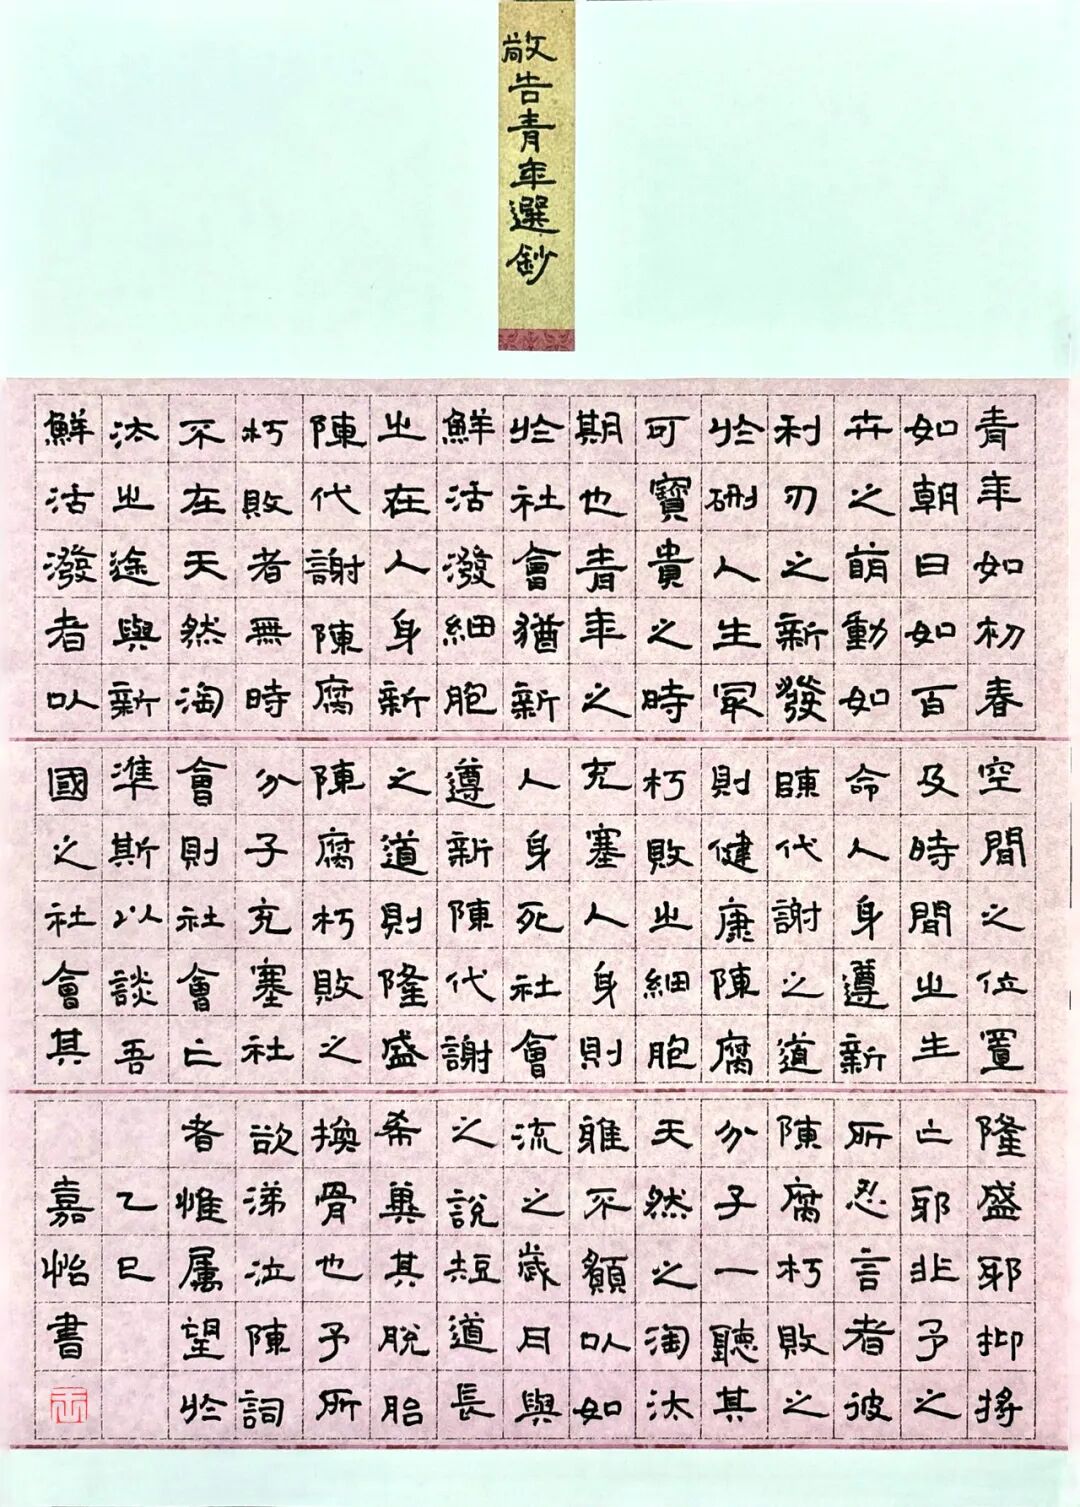 敬告青年選鈔
青年如初春
如朝日如百
卉之萌動如
利刃之新發
於硎人生冣
可寶貴之時
期也青年之
於社會猶新
鮮活潑細胞
之在人身新
陳代謝陳腐
朽敗者無時
不在天然淘
汰之途與新
鮮活潑者以
空間之位置
及時間之生
命人身遵新
陳代謝之道
則健康陳腐
朽敗之細胞
充塞人身則
人身死社會
遵新陳代謝
之道則隆盛
陳腐朽敗之
分子充塞社
會則社會亡
準斯以談吾
國之社會其
隆盛耶抑將
亡耶非予之
所忍言者彼
陳腐朽敗之
分子一聽其
天然之淘汰
雖不願以如
流之歲月與
之說短道長
希冀其脫胎
換骨也予所
欲涕泣陳詞
者惟属望於
乙巳
嘉怡書